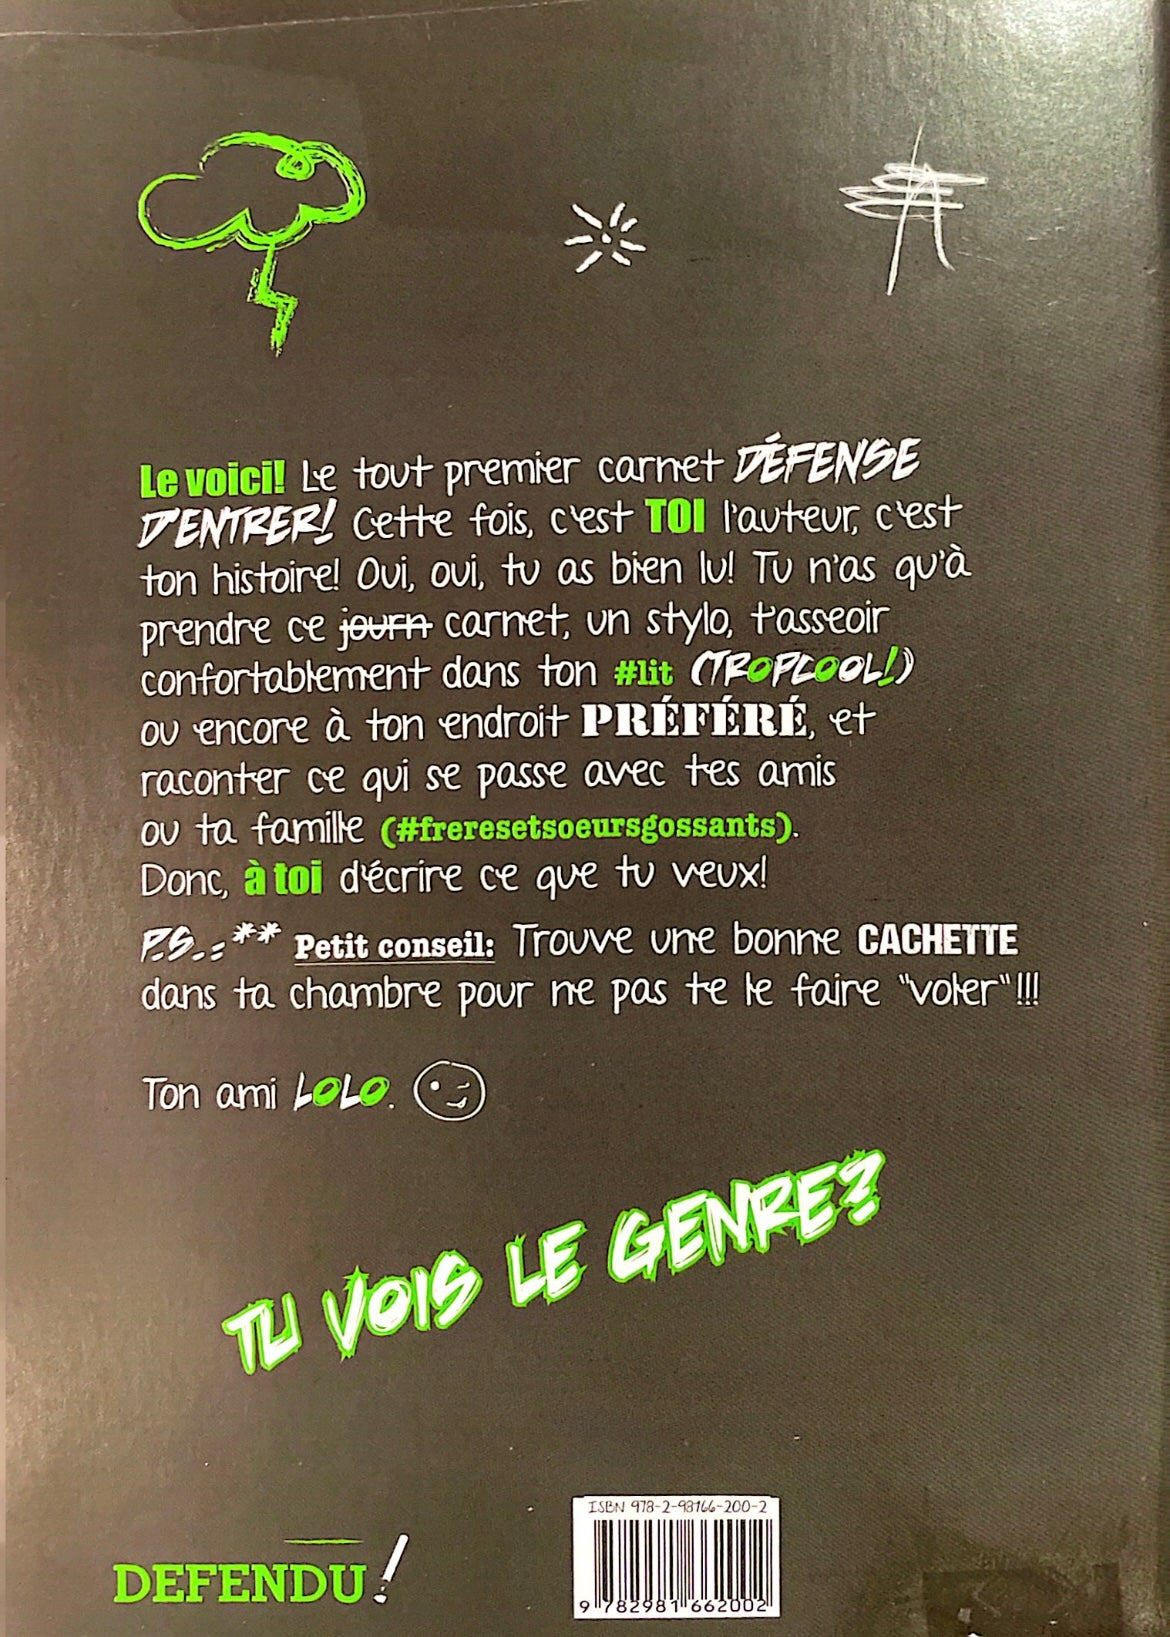 Le voici! Le tout premier carnet DÉFENSE
D'ENTRER! Cette fois, c'est TOI l'auteur, c'est
ton histoire! Oui, oui, tu as bien lu! Tu n'as qu'à
prendre ce journ carnet, un stylo, t'asseoir
confortablement dans ton #lit (TROPCOOL!)
ou encore à ton endroit PRÉFÉRÉ, et
raconter ce qui se passe avec tes amis
ou ta famille (#freresetsoeursgossants).
Donc, à toi d'écrire ce que tu veux!
P.S.:** Petit conseil: Trouve une bonne CACHETTE
dans ta chambre pour ne pas te le faire "voler"!!!
Ton ami LOLO.
TU VOIS LE GENRE?
ISBN 978-2-98166-200-2
9 782981 662002
DEFENDU!